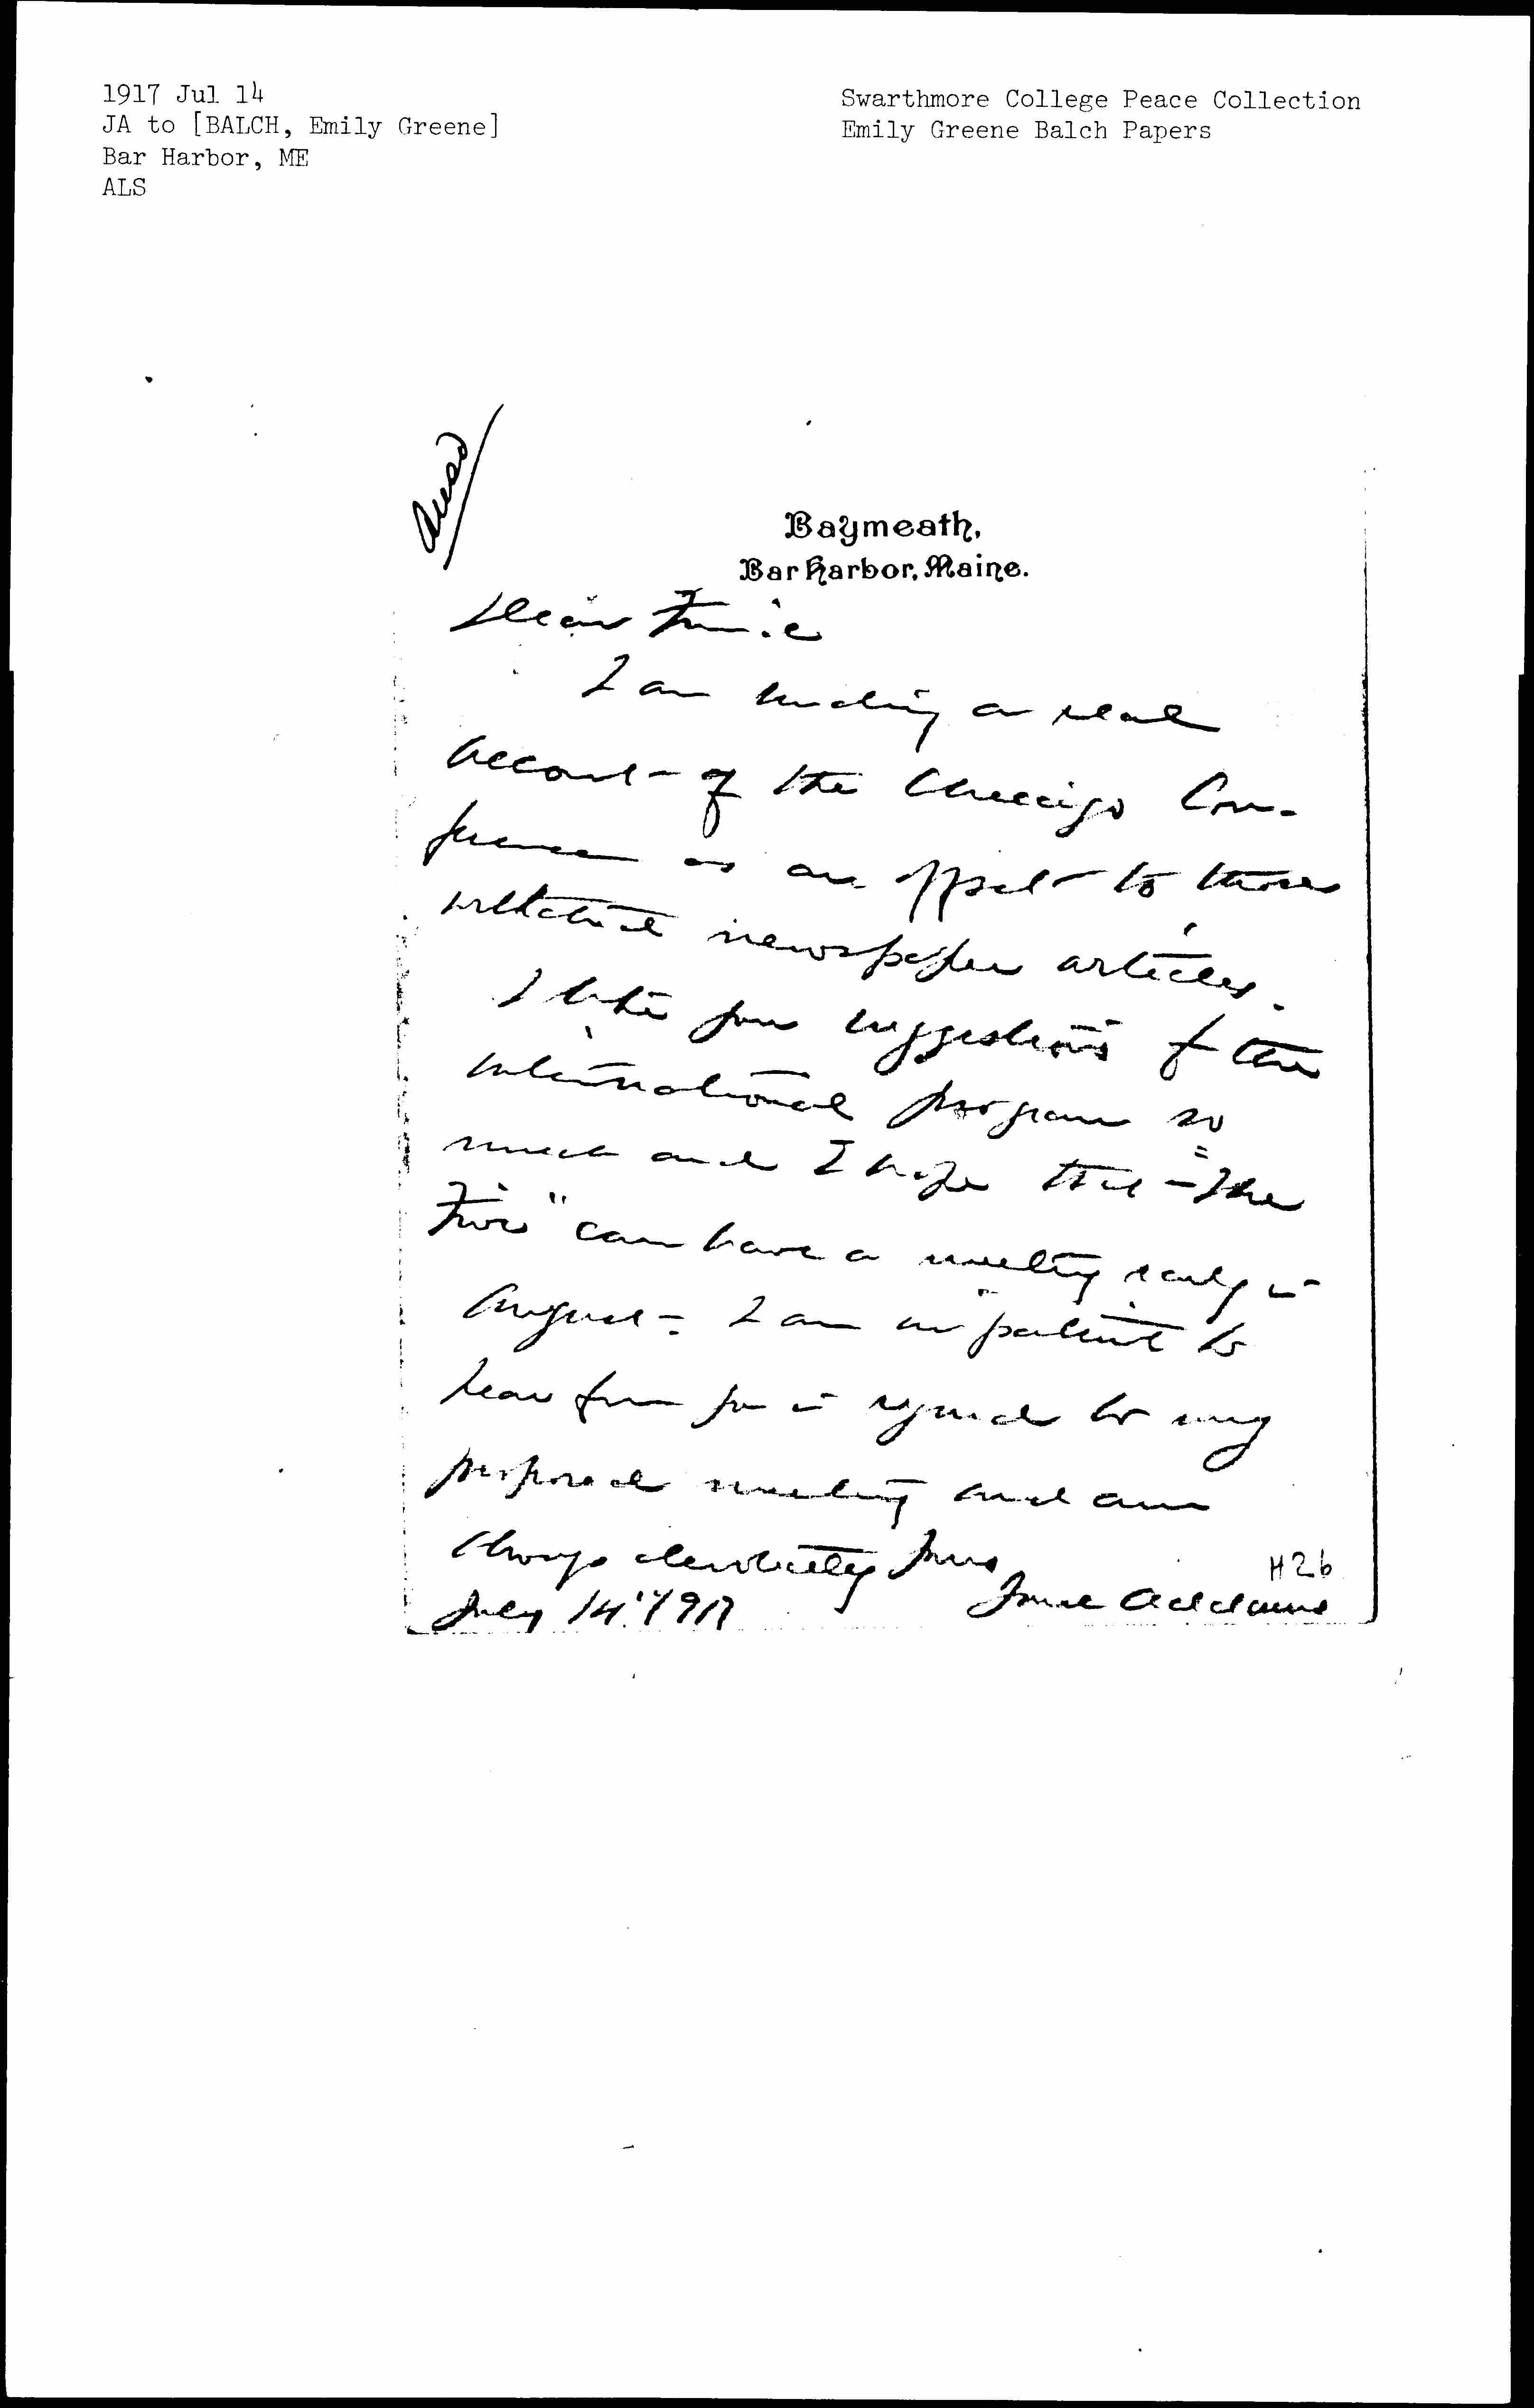 1917 Jul 14
JA to [BALCH, Emily Greene]
Bar Harbor, ME
ALS
Swarthmore College Peace Collection
Emily Greene Balch Papers
Baymeath,
Bar Harbor, Maine.
Dear
I am sending a real
account of the Chicago Con-
ference as an offset to those
wretched newspaper articles.
I like your suggestions of the
international program so
much and I hope that "The
Five" can have a meeting early in
August. I am impatient to
hear from you in regard to my
proposed meeting and am
always devotedly yours
H26
July 14" 1917 Jane Addams